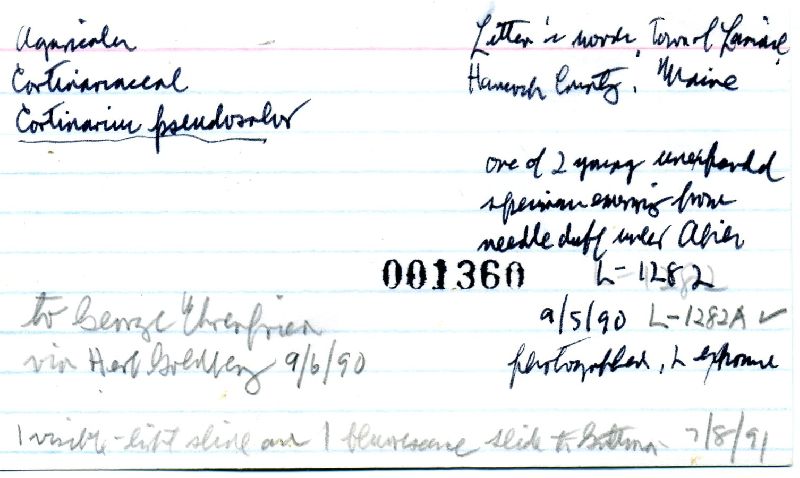 Agaricales
Cortinariaceae
Cortinarius pseudosalor
Litten's woods, Town of Lamoine,
Hancock County, Maine
one of 2 young unexpanded
specimen emerging from
needle duff under Abies
001360
L-1282
9/5/90 L-1282A ✓
photographed, L exposure
to George
via Herb Goldberg 9/6/90
1 visible-light slide and 1 fluorescence slide to 7/8/91